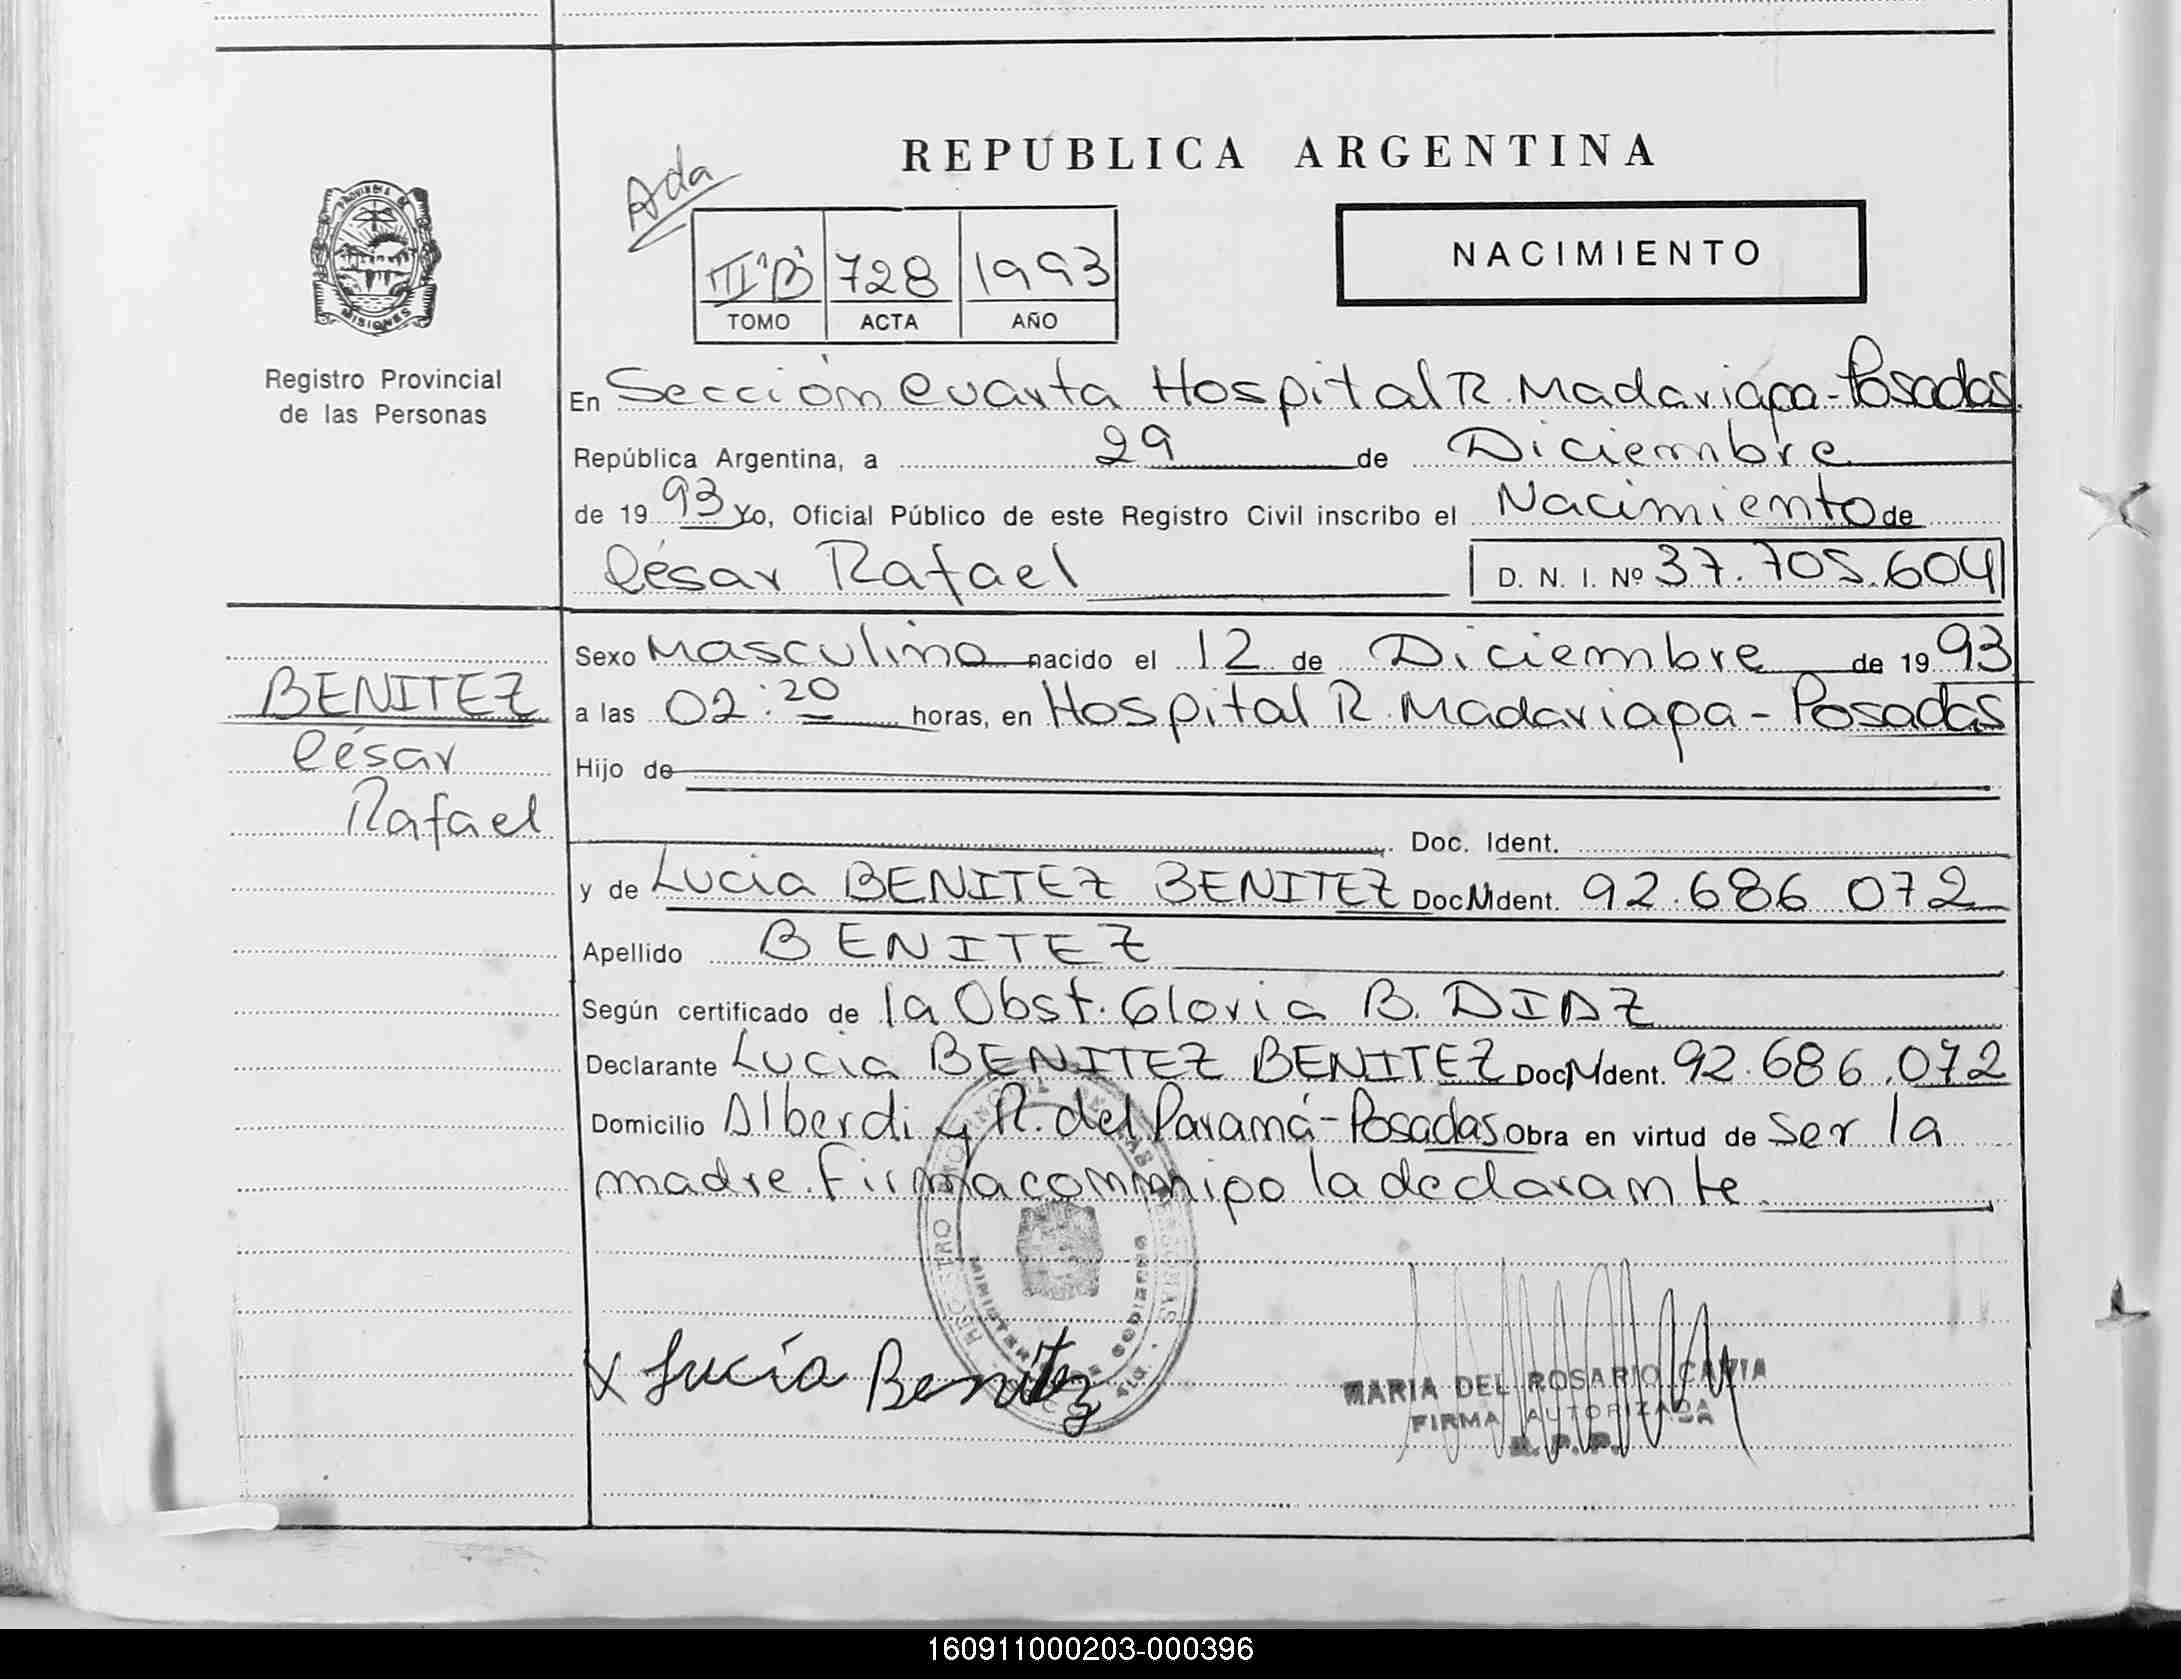 REPUBLICA ARGENTINA
Ada
III "B" 728 1993
TOMO ACTA AÑO
NACIMIENTO
PROVINCIA DE
MISIONES
Registro Provincial
de las Personas
En Sección Cuarta Hospital R. Madariaga - Posadas
República Argentina, a 29 de Diciembre
de 1993 Yo, Oficial Público de este Registro Civil inscribo el Nacimiento de
César Rafael D. N. I. Nº 37.705.604
BENITEZ
César
Rafael
Sexo Masculino nacido el 12 de Diciembre de 1993
a las 02:20 horas, en Hospital R. Madariaga - Posadas
Hijo de
Doc. Ident.
y de Lucia BENITEZ BENITEZ Doc. Ident. 92.686.072
Apellido BENITEZ
Según certificado de la Obst. Gloria B. DIAZ
Declarante Lucia BENITEZ BENITEZ Doc. Ident. 92.686.072
Domicilio Alberdi y R. del Paraná - Posadas Obra en virtud de ser la
madre. Firma conmigo la declarante
REGISTRO PROVINCIAL DE LAS PERSONAS
MINISTERIO DE GOBIERNO
x Lucía Benitez
MARIA DEL ROSARIO
FIRMA AUTORIZADA
R. P. P.
160911000203-000396